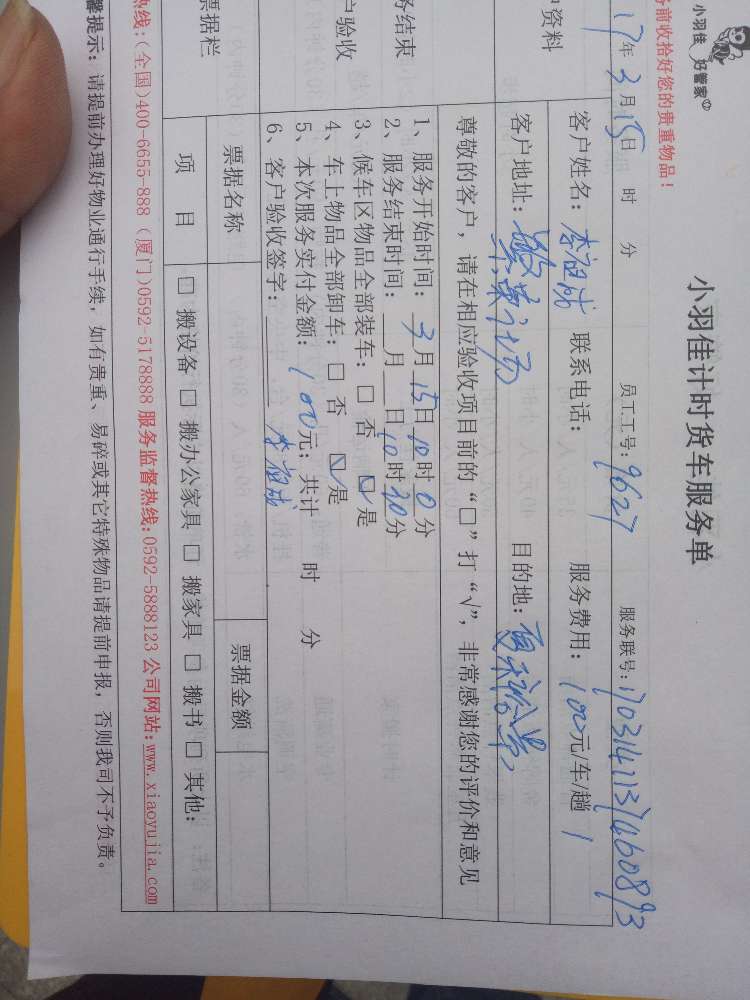 小羽佳
好管家
小羽佳计时货车服务单
前收拾好您的贵重物品!
17年3月15日 时 分 员工工号: 9627 服务联号: 1703141137460893
资料 客户姓名: 李祖 联系电话: 服务费用: 100元/车/趟 1
客户地址: 目的地:
尊敬的客户, 请在相应验收项目前的“□”打“√”, 非常感谢您的评价和意见
务结束
户验收
1、服务开始时间: 3月15日10时0分
2、服务结束时间: 月 日10时30分
3、候车区物品全部装车: □ 否 ☑ 是
4、车上物品全部卸车: □ 否 ☑ 是
5、本次服务实付金额: 100元; 共计 时 分
6、客户验收签字: 李祖
票据栏 票据名称 票据金额
项 目 □ 搬设备 □ 搬办公家具 □ 搬家具 □ 搬书 □ 其他:
热线:(全国)400-6655-888 (厦门)0592-5178888 服务监督热线:0592-5888123 公司网站:www.xiaoyujia.com
馨提示: 请提前办理好物业通行手续, 如有贵重、易碎或其它特殊物品请提前申报, 否则我司不予负责。